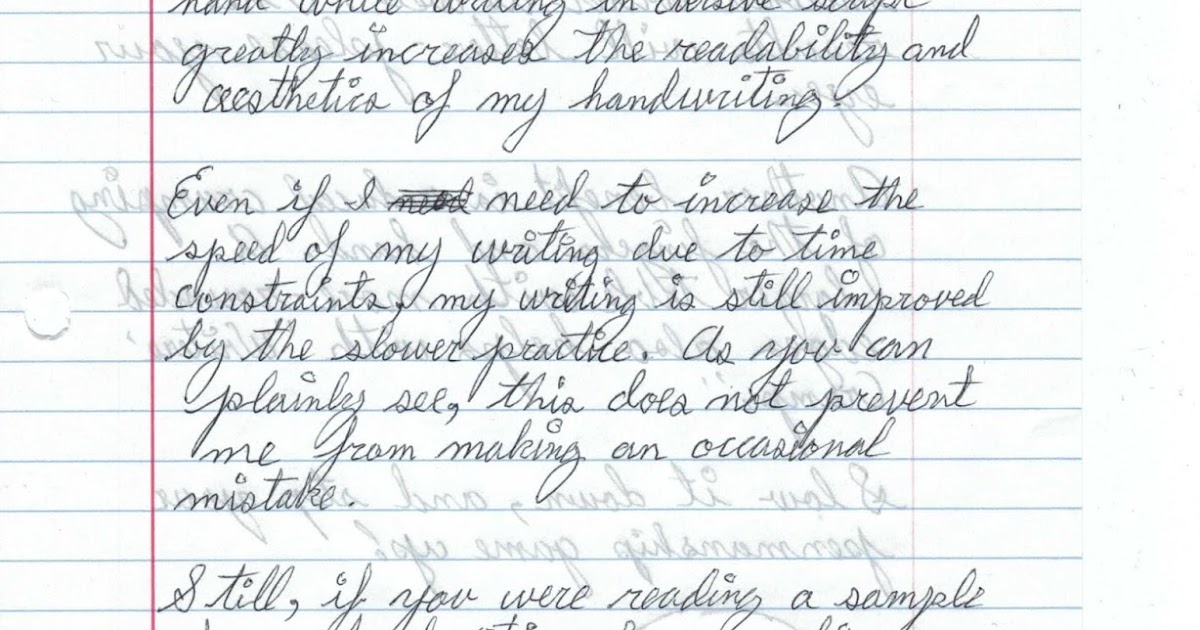 hand while writing in cursive script
greatly increases the readability and
aesthetics of my handwriting.
Even if I need need to increase the
speed of my writing due to time
constraints, my writing is still improved
by the slower practice. As you can
plainly see, this does not prevent
me from making an occasional
mistake.
Still, if you were reading a sample